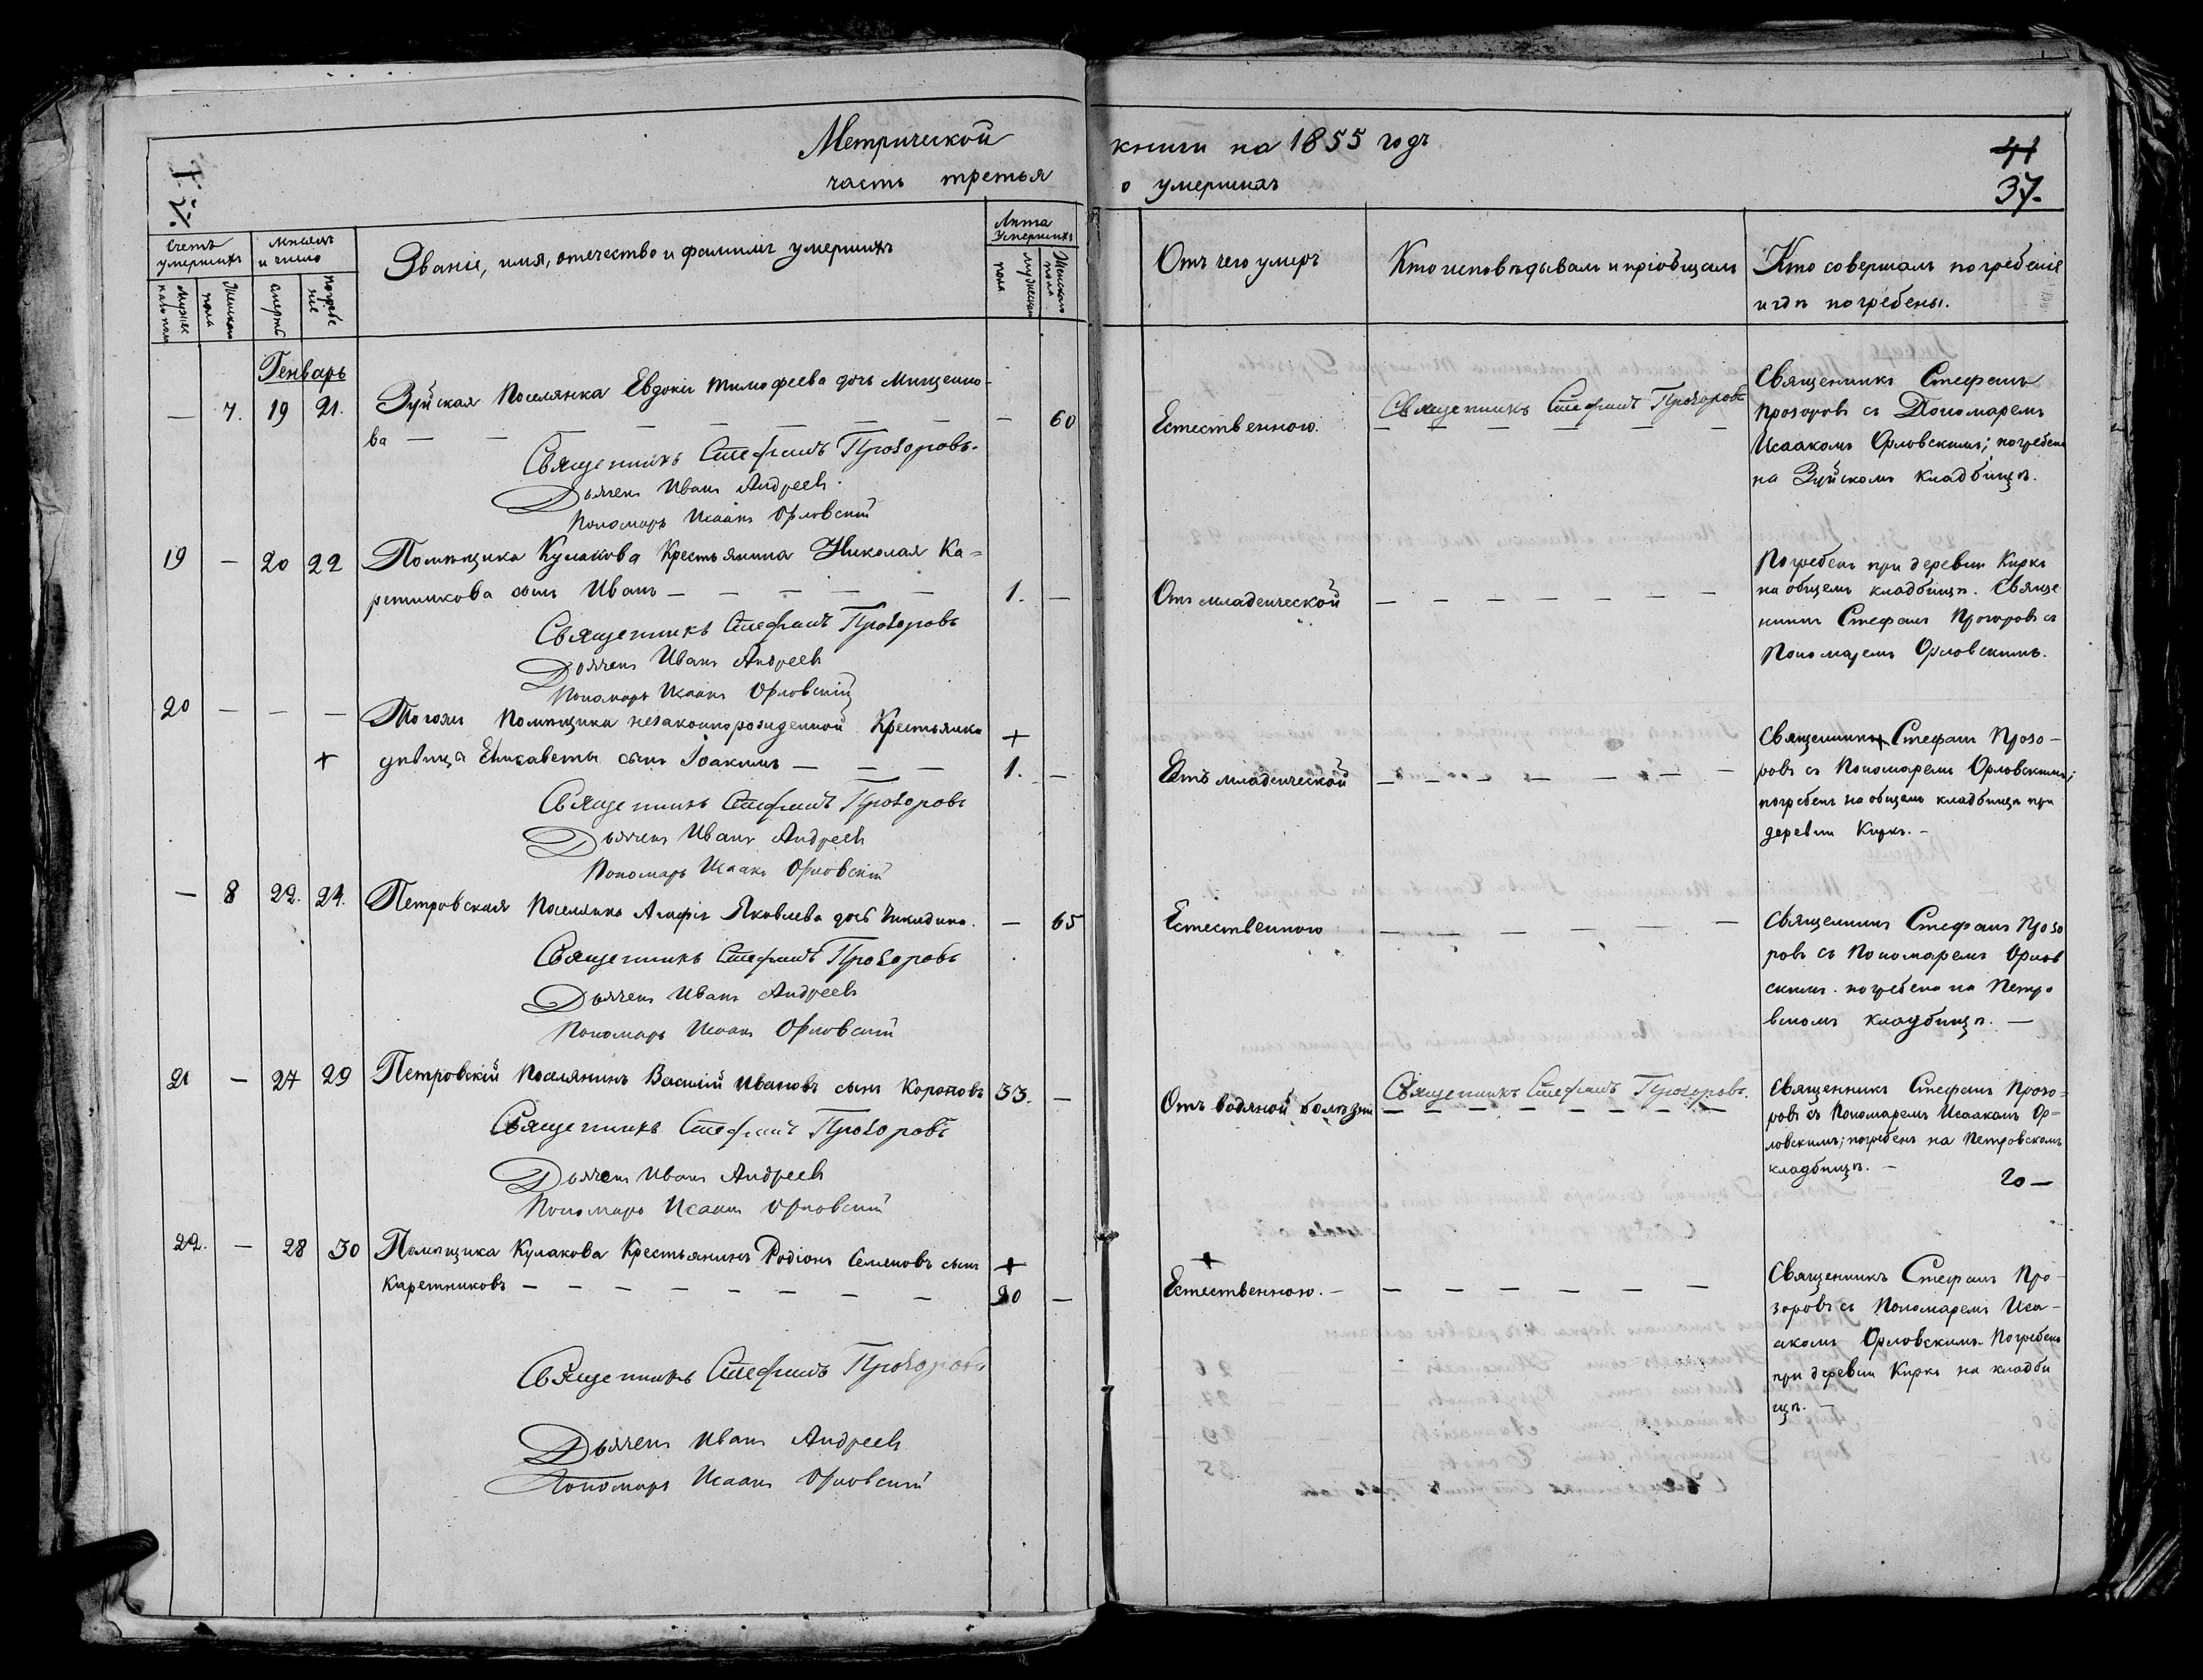 Метрической книги на 1855 годъ
часть третья о умершихъ
41
37.
Счетъ умершихъ
Мужескаго пола
Женскаго пола
Мѣсяцъ и число
Смерти
Погребенiе
Званiе, имя, отечество и фамилiя умершихъ
Лѣта умершихъ
Мужескаго пола
Женскаго пола
Отъ чего умеръ
Кто исповѣдывалъ и прiобщалъ
Кто совершалъ погребенiе
и гдѣ погребены.
Генварь
— 7. 19 21. Зуйская Поселянка Евдокiя Тимофеева дочь Мищенко-
ва — — — — — — — — 60
Священникъ Стефанъ Прозоровъ.
Дьячекъ Иванъ Андреевъ.
Пономарь Исаакъ Орловскiй
Естественною.
Священникъ Стефанъ Прозоровъ
Священникъ Стефанъ
Прозоровъ съ Пономаремъ
Исаакомъ Орловскимъ; погребена
на Зуйскомъ кладбищѣ.
19 — 20 22 Помѣщика Кулакова Крестьянина Николая Ка-
ретникова сынъ Иванъ — — — — — 1. —
Священникъ Стефанъ Прозоровъ
Дьячекъ Иванъ Андреевъ
Пономарь Исаакъ Орловскiй
Отъ младенческой — — — — — — —
Погребенъ при деревни Киркъ
на общемъ кладбищѣ. Священ
никъ Стефанъ Прозоровъ съ
Пономаремъ Орловскимъ.
20 — — — Тогожъ Помѣщика незаконнорожденной Крестьянки +
+ дѣвицы Елисаветы сынъ Iоакимъ — — — 1. —
Священникъ Стефанъ Прозоровъ
Дьячекъ Иванъ Андреевъ
Пономарь Исаакъ Орловскiй
Отъ младенческой — — — — — — —
Священникъ Стефанъ Прозо-
ровъ съ Пономаремъ Орловскимъ;
погребенъ на общемъ кладбищѣ при
деревни Киркъ. —
— 8 22. 24. Петровская Поселянка Агафiя Яковлева дочь Чикидина. — 65
Священникъ Стефанъ Прозоровъ
Дьячекъ Иванъ Андреевъ
Пономарь Исаакъ Орловскiй
Естественною — — — — — — —
Священникъ Стефанъ Прозо
ровъ съ Пономаремъ Орлов
скимъ. погребена на Петро
вскомъ кладбищѣ. —
21 — 27 29 Петровскiй Поселянинъ Василiй Ивановъ сынъ Коротовъ 33. —
Священникъ Стефанъ Прозоровъ
Дьячекъ Иванъ Андреевъ
Пономарь Исаакъ Орловскiй
Отъ водяной болѣзни
Священникъ Стефанъ Прозоровъ.
Священникъ Стефанъ Прозо-
ровъ съ Пономаремъ Исаакомъ Ор-
ловскимъ; погребенъ на Петровскомъ
кладбищѣ. —
20 —
22. — 28 30 Помѣщика Кулакова Крестьянинъ Родiонъ Семеновъ сынъ +
Каретниковъ — — — — — — — — 90 —
Священникъ Стефанъ Прозоровъ
Дьячекъ Иванъ Андреевъ
Пономарь Исаакъ Орловскiй
+
Естественною. — — — — — — —
Священникъ Стефанъ Про-
зоровъ съ Пономаремъ Иса-
акомъ Орловскимъ. Погребенъ
при деревни Киркъ на кладби
щѣ. —